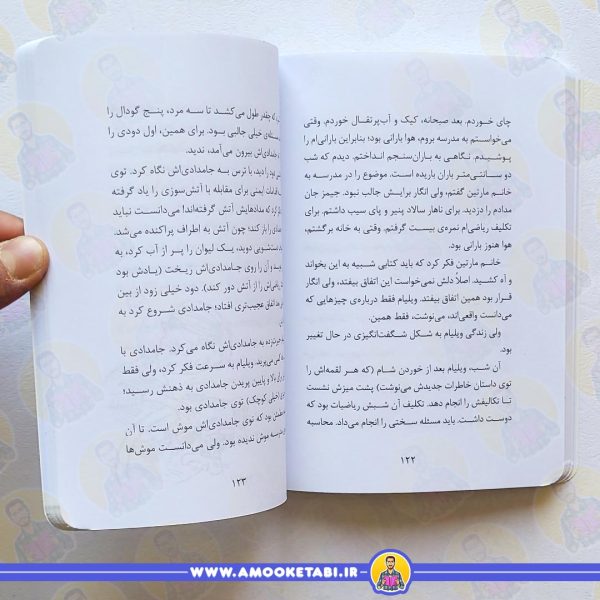 چای خوردم. بعد صبحانه، کیک و آب‌پرتقال خوردم. وقتی
می‌خواستم به مدرسه بروم، هوا بارانی بود؛ بنابراین بارانی‌ام را
پوشیدم. نگاهی به باران‌سنجم انداختم. دیدم که شب
دو سانتی‌متر باران باریده است. موضوع را در مدرسه به
خانم مارتین گفتم، ولی انگار برایش جالب نبود. جیمز جان
مدادم را دزدید. برای ناهار سالاد پنیر و پای سیب داشتم. برای
تکلیف ریاضی‌ام نمره‌ی بیست گرفتم. وقتی به خانه برگشتم،
هوا هنوز بارانی بود.
خانم مارتین فکر کرد که باید کتابی شبیه به این بخواند
و آه کشید. اصلاً دلش نمی‌خواست این اتفاق بیفتد، ولی انگار
قرار بود همین اتفاق بیفتد. ویلیام فقط درباره‌ی چیزهایی که
می‌دانست واقعی‌اند، می‌نوشت، فقط همین.
ولی زندگی ویلیام به شکل شگفت‌انگیزی در حال تغییر
بود.
آن شب، ویلیام بعد از خوردن شام (که هر لقمه‌اش را
توی داستان خاطرات جدیدش می‌نوشت) پشت میزش نشست
تا تکالیفش را انجام دهد. تکلیف آن شبش ریاضیات بود که
دوست داشت. باید مسئله سختی را انجام می‌داد. محاسبه
۱۲۲
که چقدر طول می‌کشد تا سه مرد، پنج گودال را
مسئله‌ی خیلی جالبی بود. برای همین، اول دودی را
جامدادی‌اش بیرون می‌آمد، ندید.
دود را دید، با ترس به جامدادی‌اش نگاه کرد. توی
اقدامات ایمنی برای مقابله با آتش‌سوزی را یاد گرفته
فکر کرد که مدادهایش آتش گرفته‌اند! می‌دانست نباید
را باز کند؛ چون آتش به اطراف پراکنده می‌شد.
دستشویی دوید، یک لیوان را پر از آب کرد،
و آن را روی جامدادی‌اش ریخت (یادش بود
ریاضی‌اش را از آتش دور کند). دود خیلی زود از بین
اتفاق عجیب‌تری افتاد؛ جامدادی شروع کرد به
به جامدادی‌اش نگاه می‌کرد. جامدادی با
می‌پرید. ویلیام به سرعت فکر کرد، ولی فقط
بالا و پایین پریدن جامدادی به ذهنش رسید؛
(خیلی کوچک) توی جامدادی بود.
بود که توی جامدادی‌اش موش است. تا آن
موش ندیده بود. ولی می‌دانست موش‌ها
۱۲۳
WWW.AMOOKETABI.IR